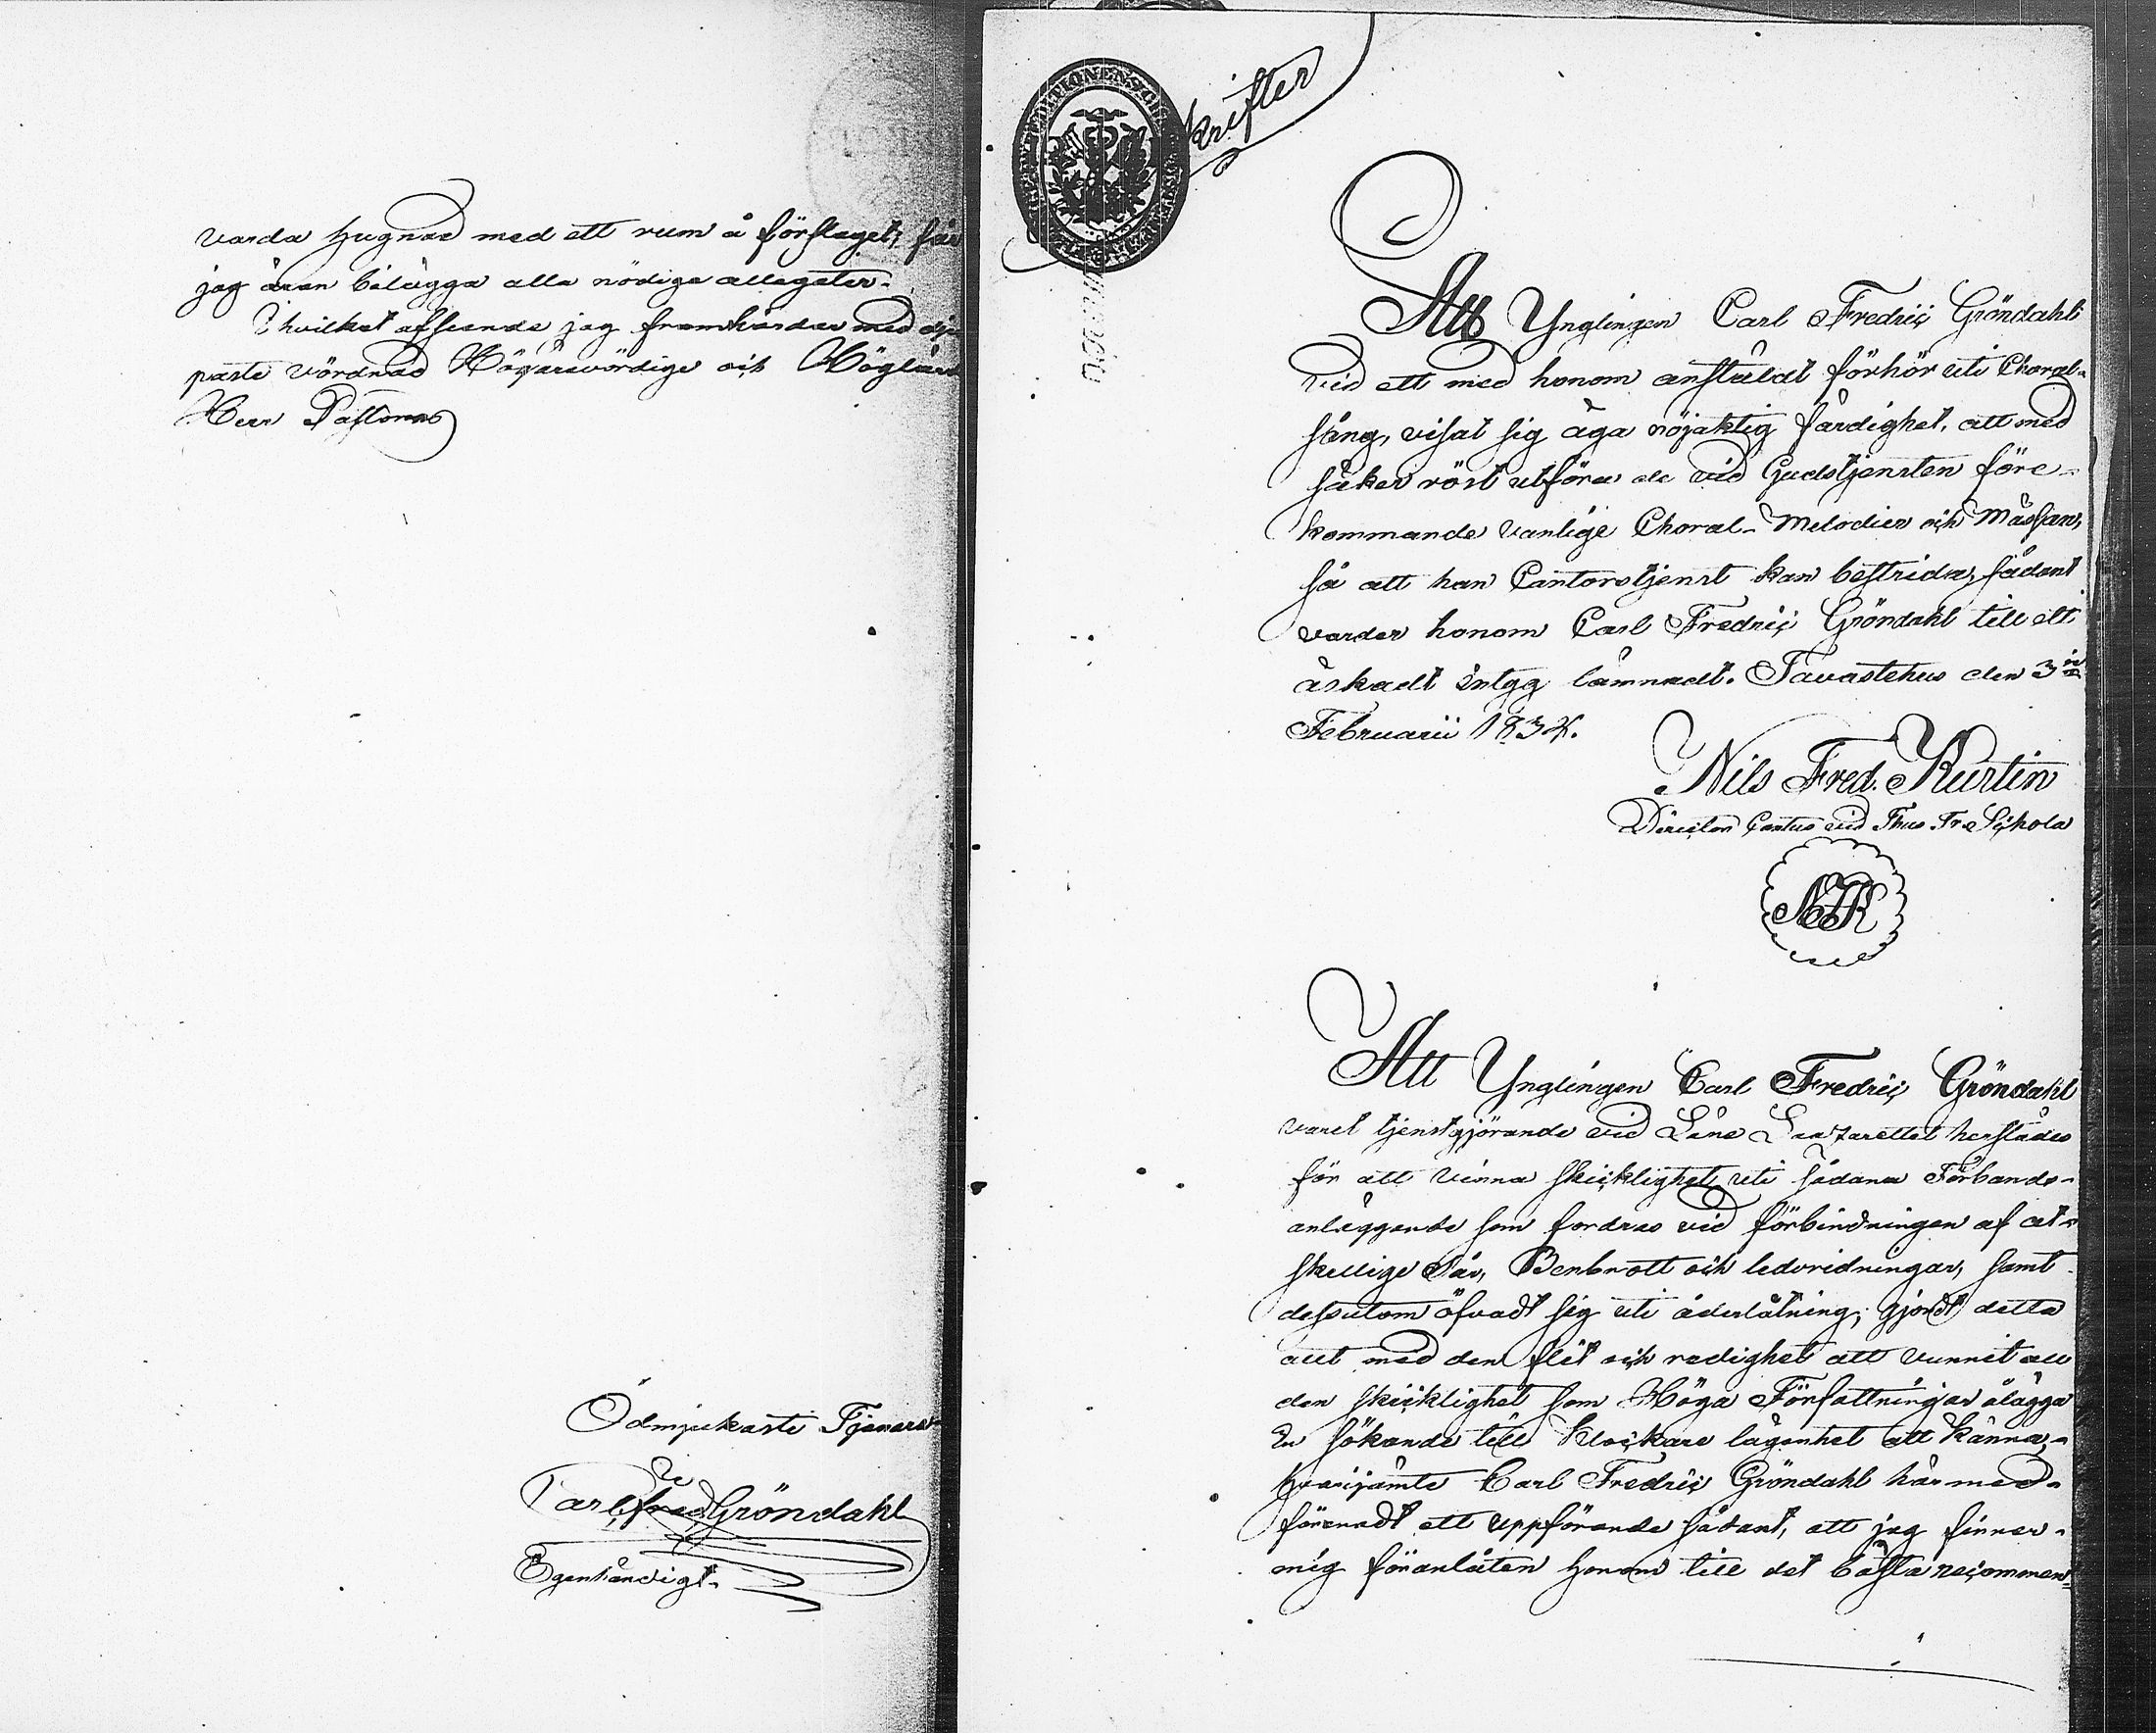 varda hugnad med ett rum å förslaget, får
jag äran bilägga alla nödige allegater.
I hvilket afseende jag framhärdar med dju
paste vördnad Högärevördige och Höglärde
Herr Pastorns
Ödmjukaste Tjenare
Carl Fred Gröndahl
Egenhändigt.
krifter
Att Ynglingen Carl Fredric Gröndahl
vid ett med honom anstäldt förhör uti Choral-
sång, visat sig äga nöjaktig färdighet, att med
säker röst utföra de vid Gudstjensten före-
kommande vanlige Choral-Melodier och Mässan,
så att han Cantorstjenst kan bestrida, sådant
varder honom Carl Fredric Gröndahl till ett
äskadt intyg lämnadt. Tavastehus den 3
Februarii 1834.
Nils Fred. Kurtin
Director Cantus vid Thus Tr. Schola
NFK
Att Ynglingen Carl Fredric Gröndahl
varit tjenstgjörande vid Läns Lazarettet herstädes
för att vinna skicklighet uti sådana Förbands-
anläggande som fordras vid förbindningen af åt-
skillige sår, Benbrott och ledvridningar, samt
dessutom öfvadt sig uti åderlåtning; gjordt detta
allt med den flit och redighet att vunnit all
den skicklighet som Höga Författningar ålägga
en sökande till Klockare lägenhet att känna,
hvarjämte Carl Fredric Gröndahl här med-
förenadt ett uppförande sådant, att jag finner
mig föranlåten honom till det bästa recommen-